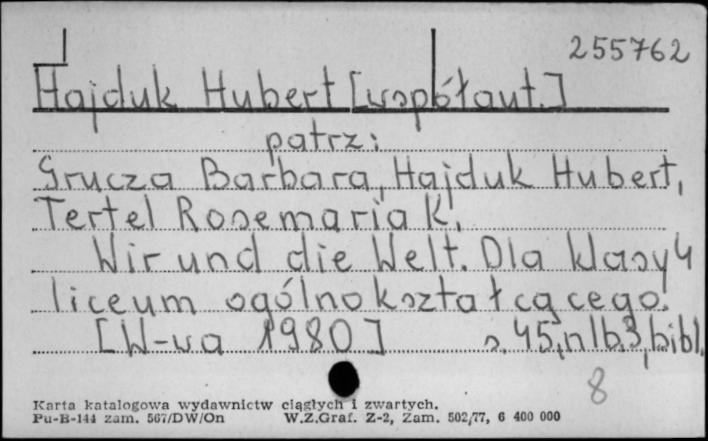 255762
Hajduk Hubert [współaut.]
patrz:
Grucza Barbara, Hajduk Hubert,
Tertel Rosemaria K.
Wir und die Welt. Dla klasy 4
liceum ogólnokształcącego.
[W-wa 1980] s. 45, nlb. 3, bibl.
8
Karta katalogowa wydawnictw ciągłych i zwartych.
Pu-B-144 zam. 567/DW/On W.Z.Graf. Z-2, Zam. 502/77, 6 400 000